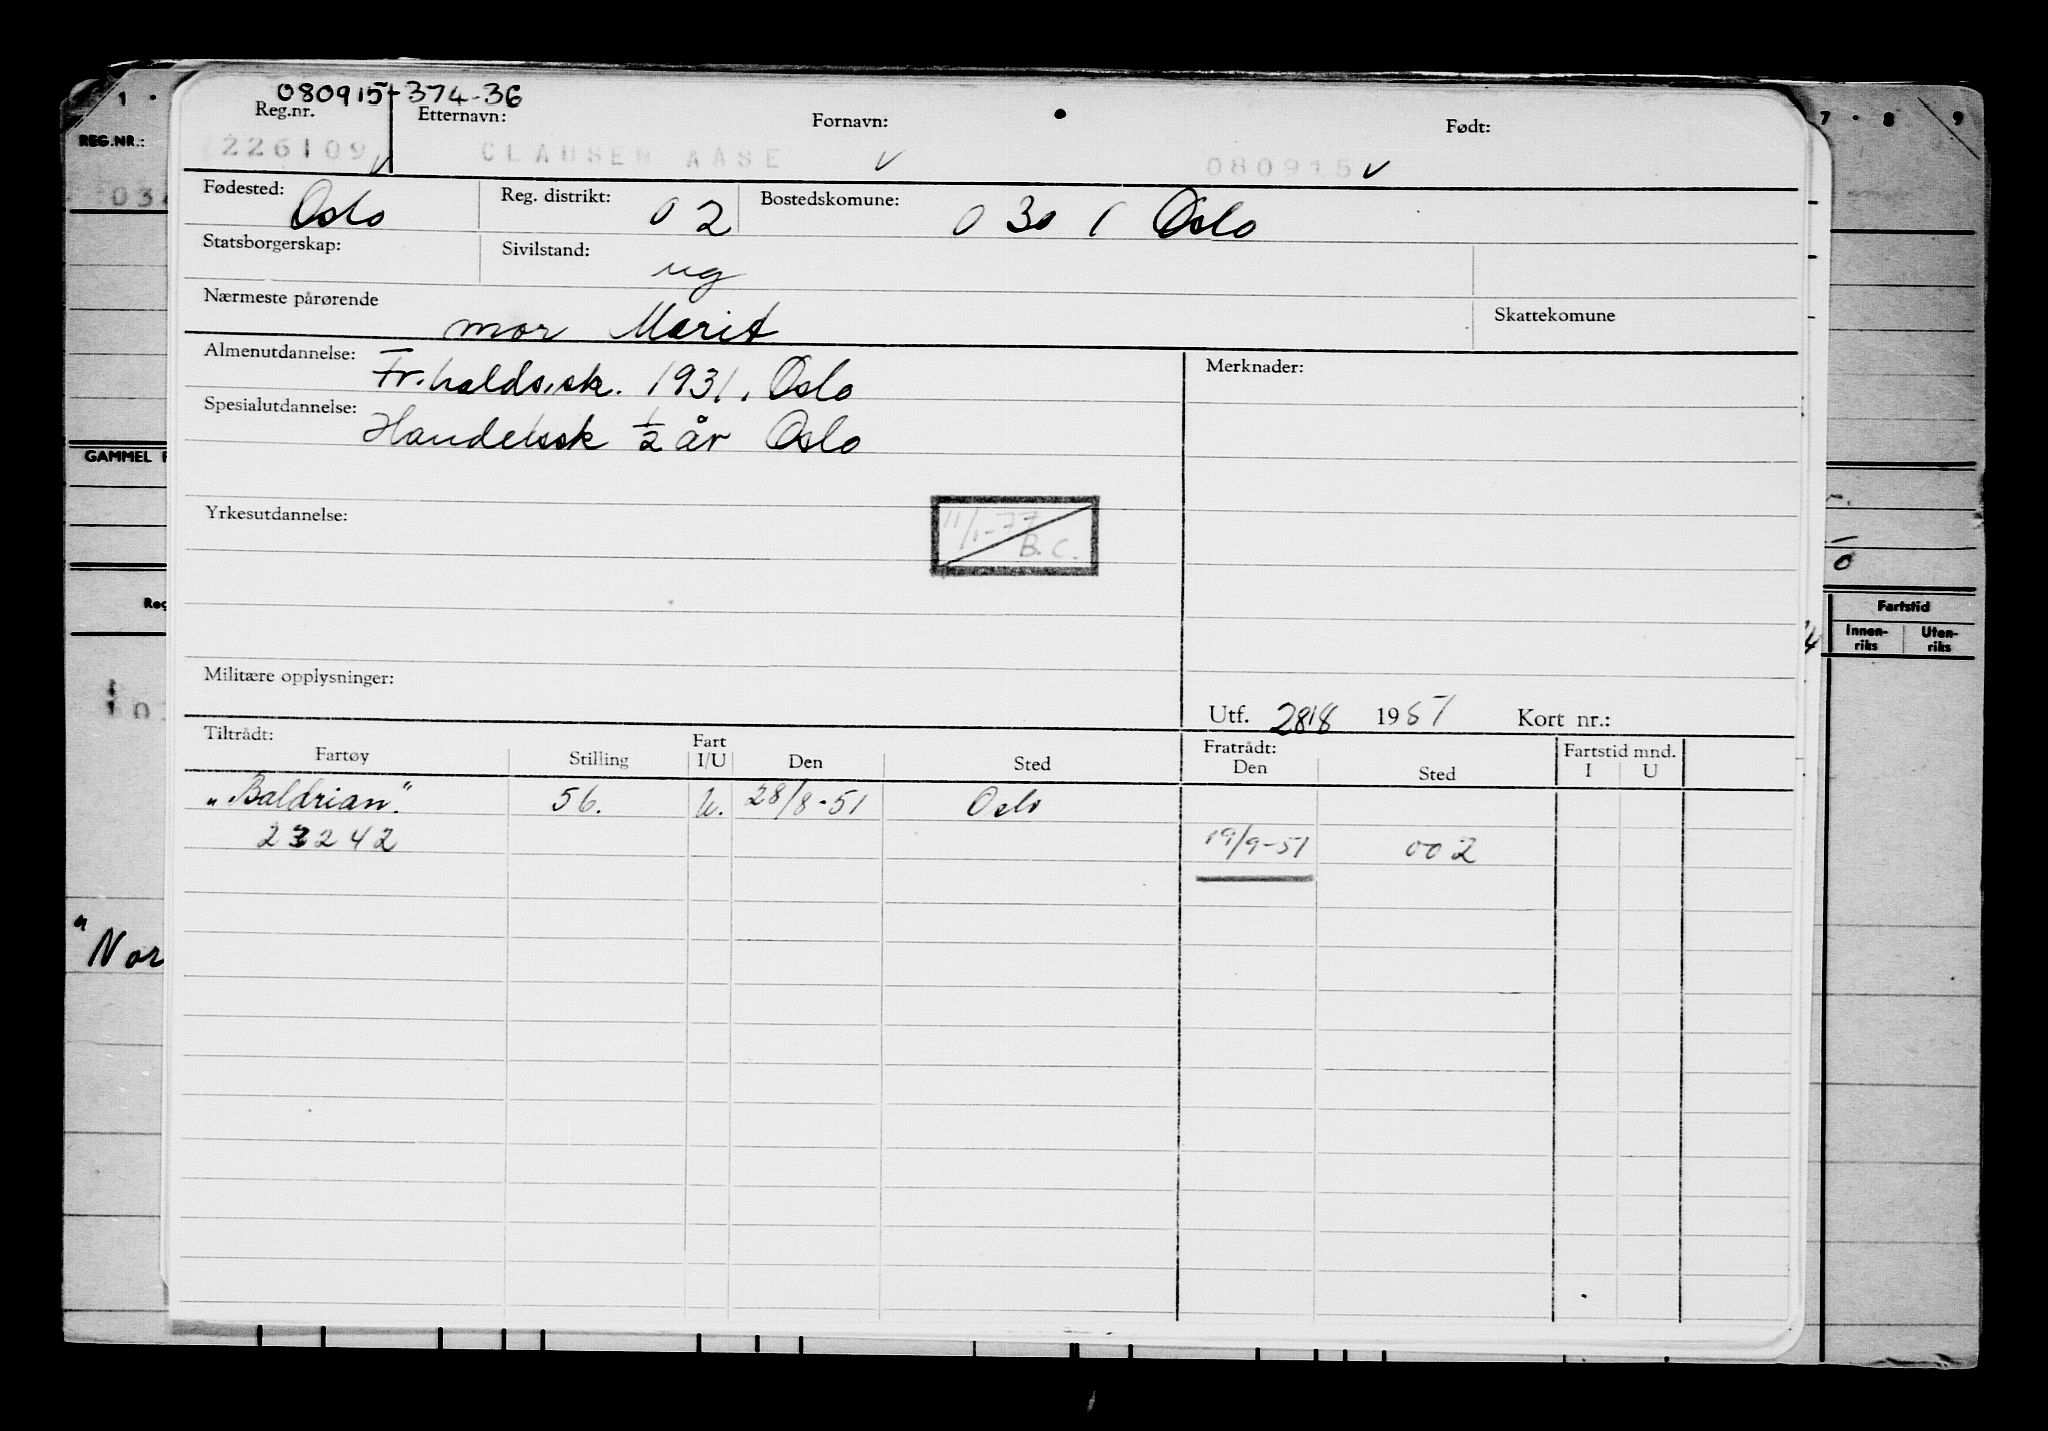 080915-374-36
1 · 7 · 8 9
REG.NR.: Reg.nr. Etternavn: Fornavn: Født:
226109 v CLAUSEN AASE v 080915 v
Fødested: Oslo Reg. distrikt: 02 Bostedskomune: 0301 Oslo
Statsborgerskap: Sivilstand: ug
Nærmeste pårørende mor Marit Skattekomune
Almenutdannelse: Fr.halds.sk. 1931. Oslo Merknader:
Spesialutdannelse: Handelssk ½ år Oslo
GAMMEL
Yrkesutdannelse: 11/1-77 B.C.
Fartstid
Innen-riks Uten-riks
Militære opplysninger:
Utf. 28/8 1951 Kort nr.:
Tiltrådt: Fratrådt: Fartstid mnd.
Fartøy Stilling Fart I/U Den Sted Den Sted I U
"Baldrian" 56. U. 28/8-51 Oslo
23242 19/9-51 002
"Nor